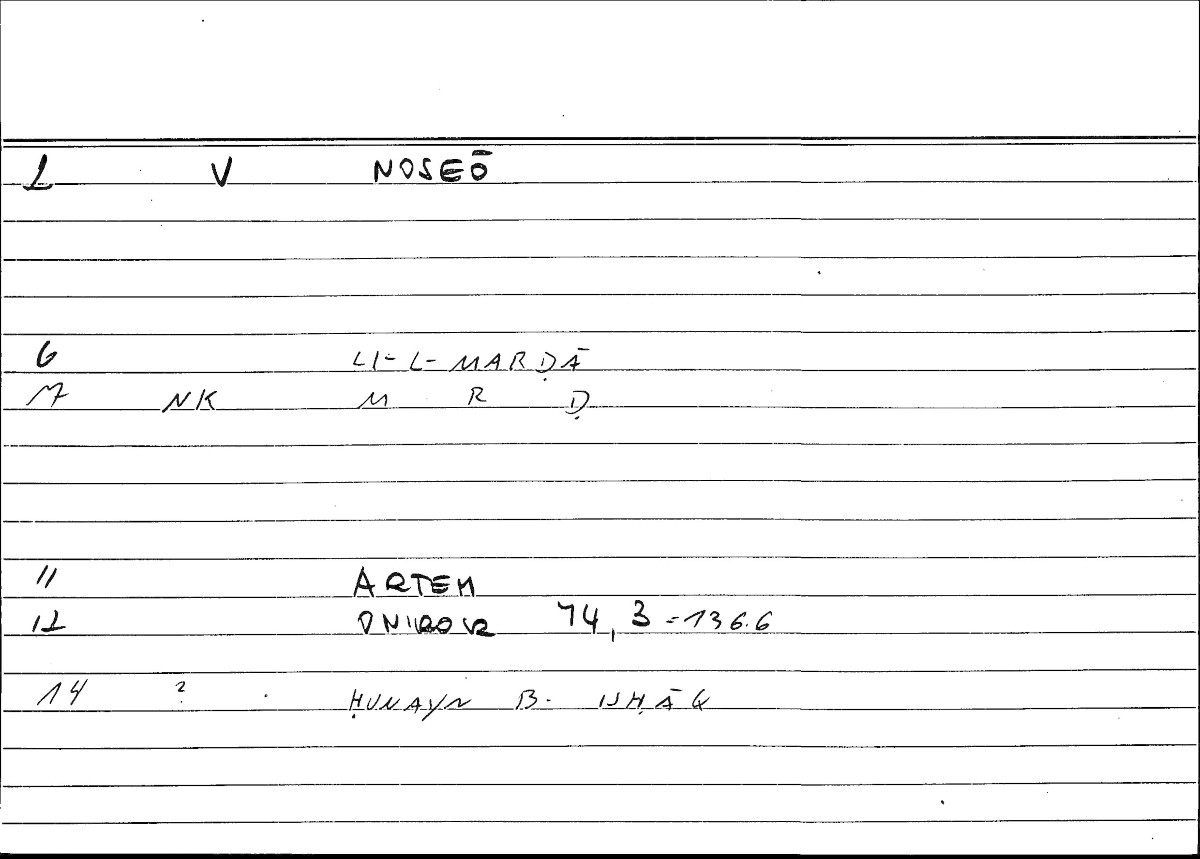 1 V NOSEŌ
6 LI-L-MARḌĀ
7 NK M R Ḍ
11 ARTEM
12 ONIROCR 74,3=136.6
14 ? ḤUNAYN B. ISḤĀQ